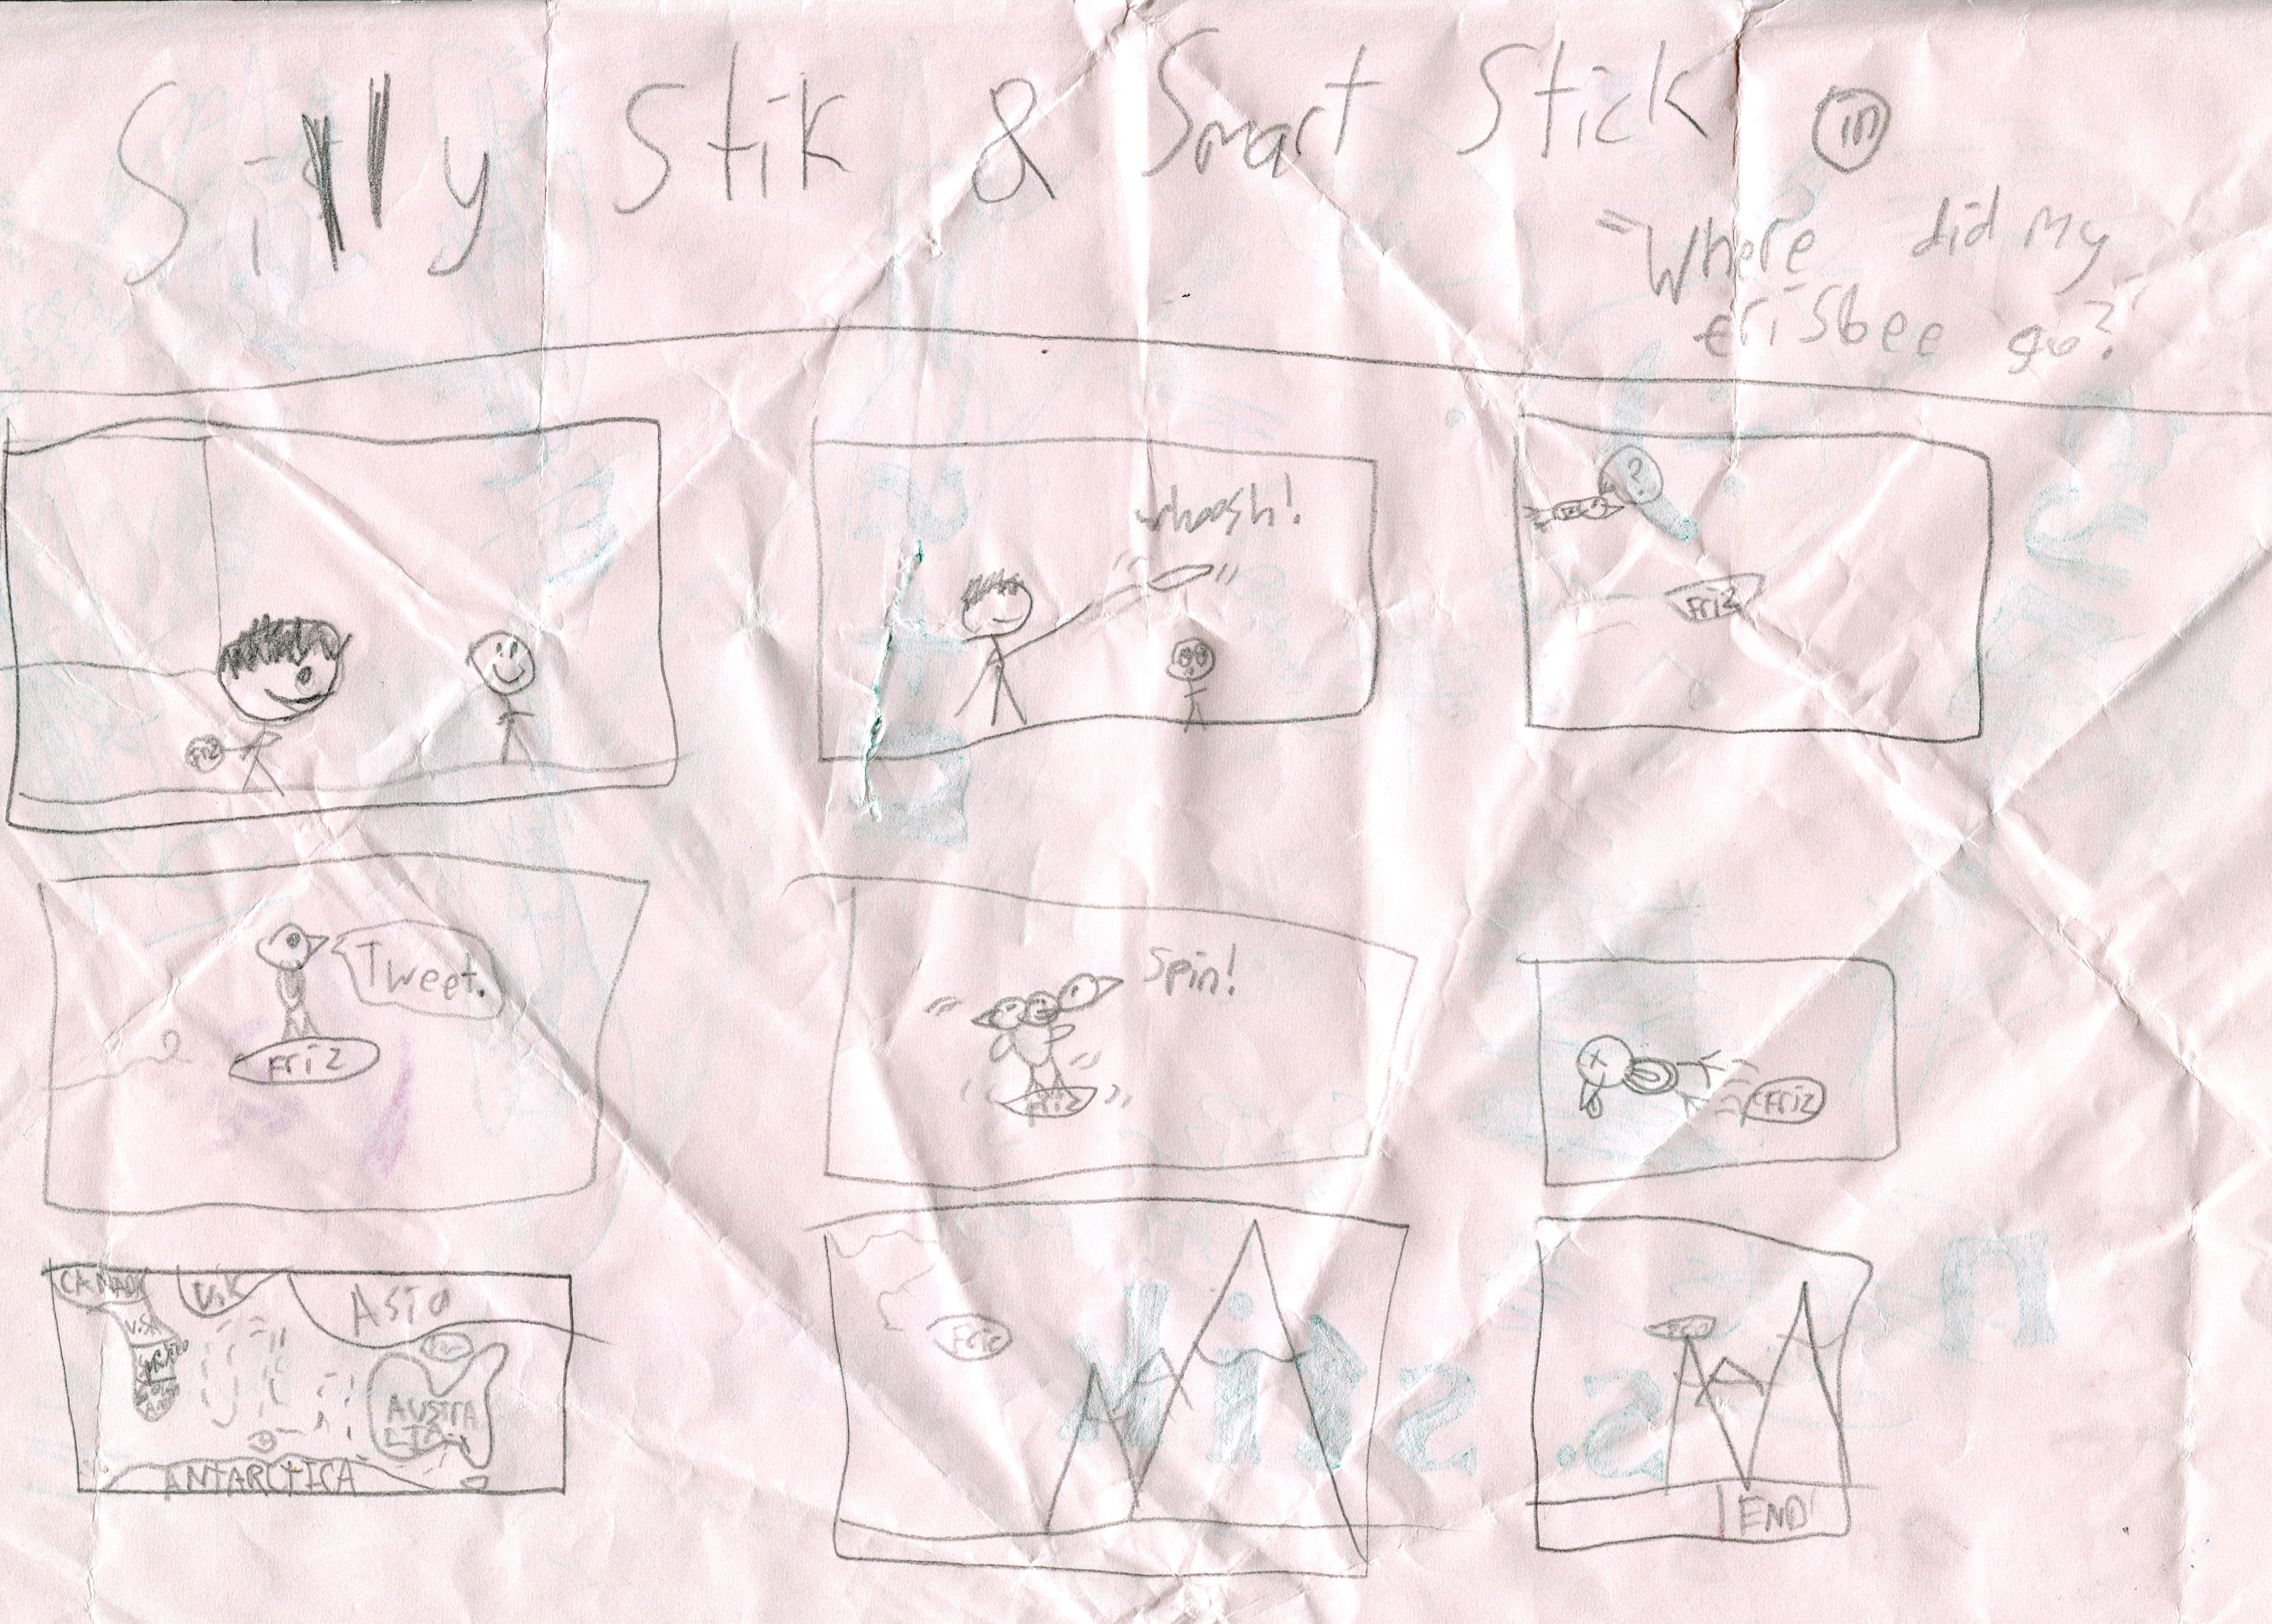 Silly Stik & Smart Stick in
"Where did my
frisbee go?"
Friz
whoosh!
?
Friz
Tweet.
Friz
Spin!
Friz
Friz
CANADA
U.K
Asia
U.SA
AUSTRA
LIA
ANTARCTICA
Friz
END